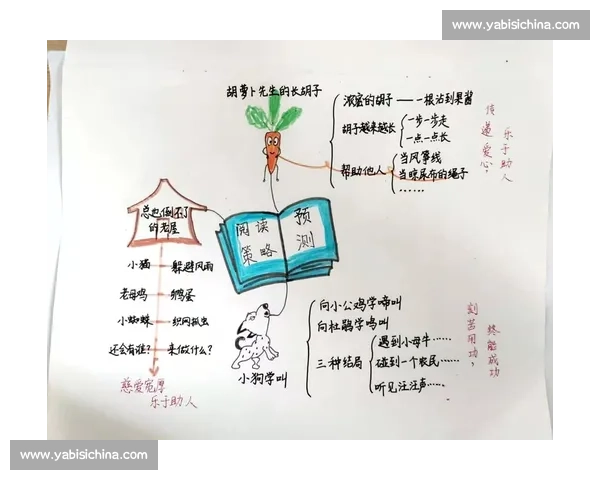 www.yabisichina.com
胡萝卜先生的长胡子
浓密的胡子——一根沾到果酱
胡子越来越长
一步一步走
一点一点长
帮助他人
当风筝线
当晾尿布的绳子
……
传递爱心,
乐于助人
总也倒不了
的老屋
小猫
躲避风雨
老母鸡
孵鸡蛋
小蜘蛛
织网抓虫
还会有谁?
来做什么?
慈爱宽厚
乐于助人
阅读
策略
预
测
小狗学叫
向小公鸡学啼叫
向杜鹃学鸣叫
三种结局
遇到小母牛……
碰到一个农民……
听见汪汪声……
刻苦用功,
终能成功
www.yabisichina.com
www.yabisichina.com